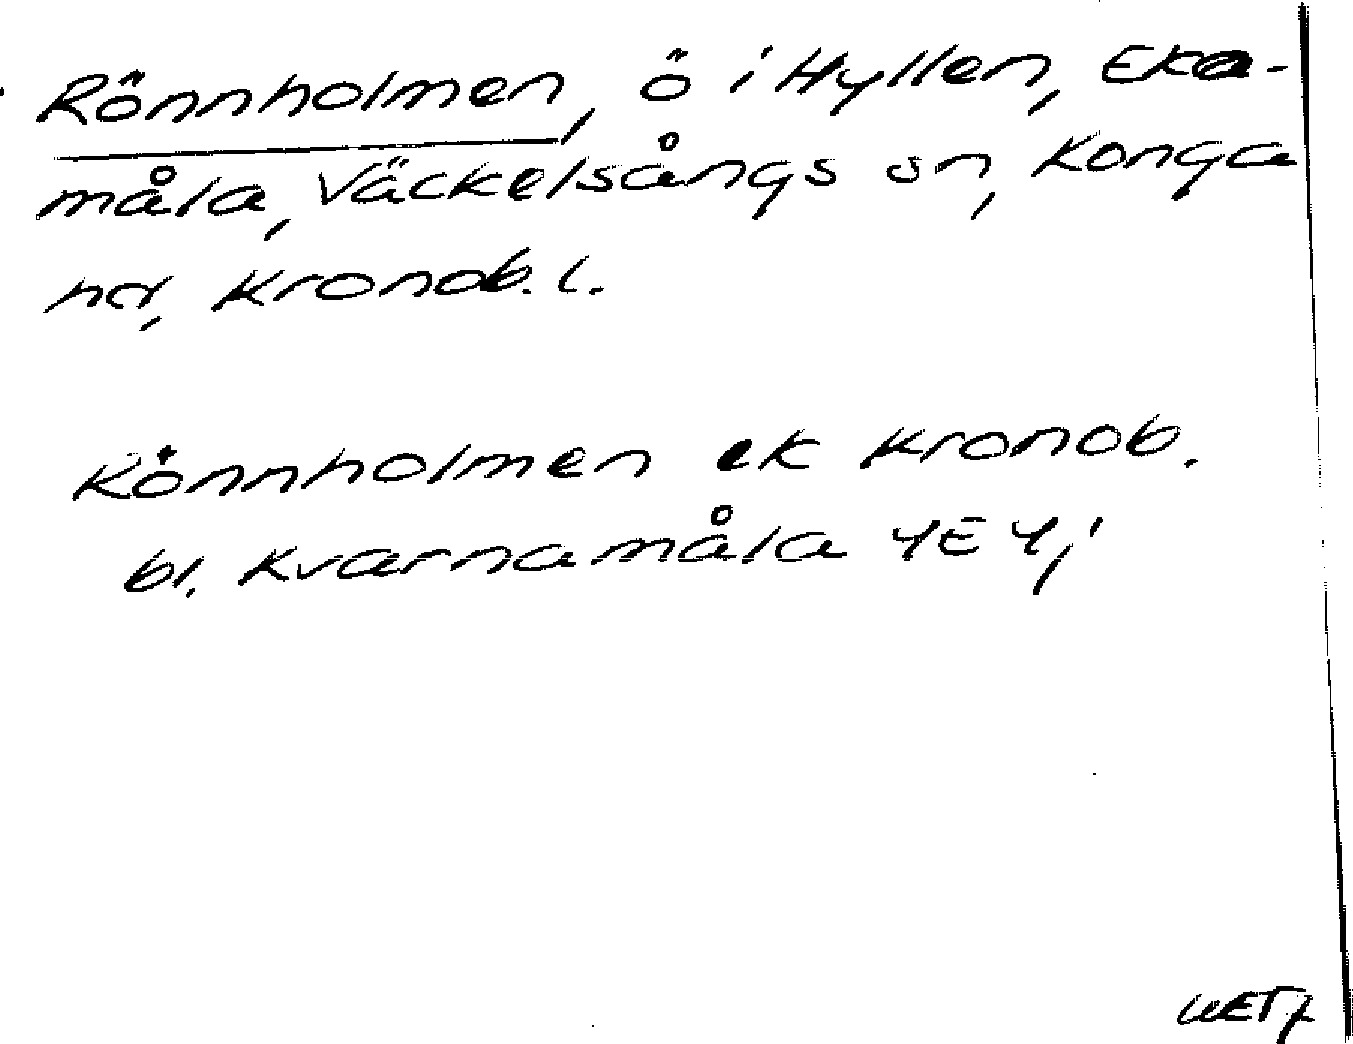 Rönnholmen, ö i Hyllen, Eka-
måla, Väckelsångs sn, Konga
hd, Kronob. l.
Rönnholmen ek Kronob.
bl. Kvarnamåla 4E4j